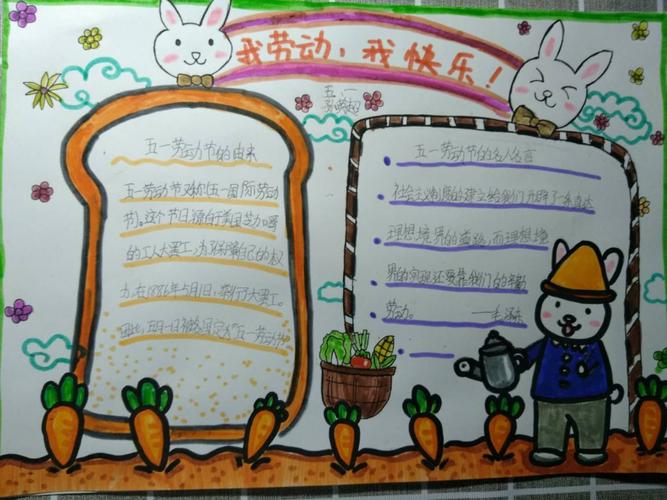 我劳动，我快乐！
五、一
五一劳动节的由来
五一劳动节又称五一国际劳动
节。这个节日源于美国芝加哥
的工人大罢工，为保障自己的权
力，在1886年5月1日，举行了大罢工。
因此五月一日被定为"五一劳动节
五一劳动节的名人名言
社会主义制度的建立给我们开辟了一条到达
理想境界的道路，而理想境
界的实现还要靠我们的辛勤
劳动。 —毛泽东